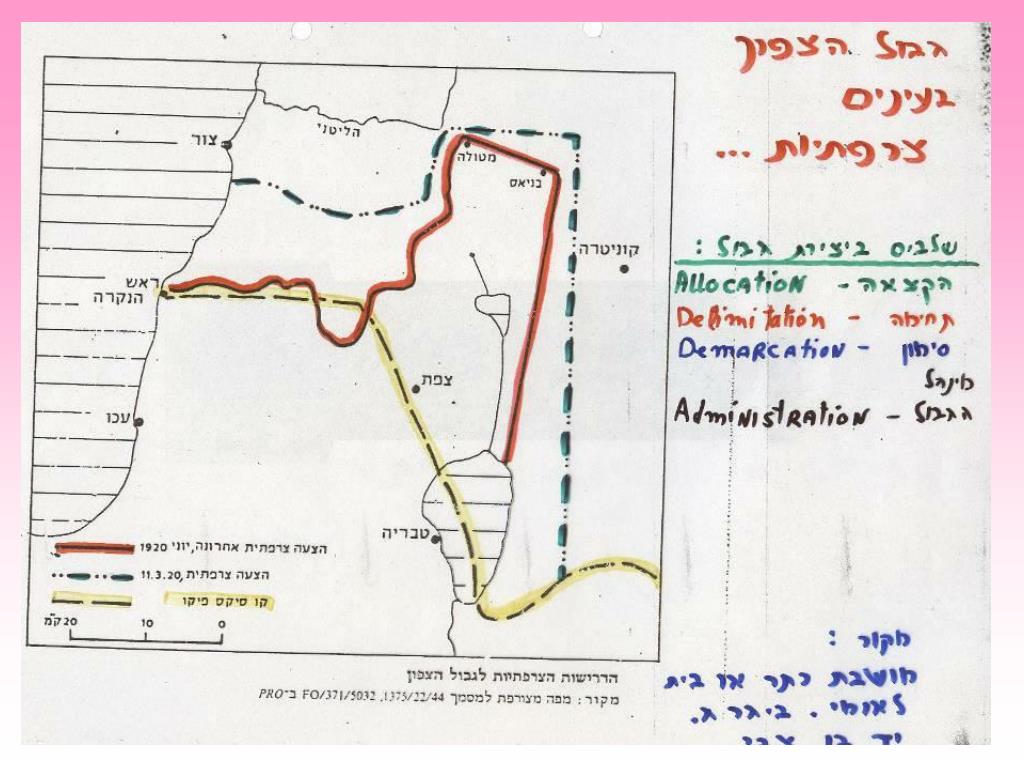 הבול הצפון
בעינים
צרפתיות ...
שלבים ביצירת הבול :
Allocation - הקצאה
Delimitation - תחימה
Demarcation - סימון
מינהל
Administration - הגבול
הליטני
צור
מטולה
בניאס
קוניטרה
ראש
הנקרה
צפת
עכו
טבריה
הצעה צרפתית אחרונה, יוני 1920
הצעה צרפתית, 11.3.20
קו סיקס פיקו
0 10 20 ק"מ
הדרישות הצרפתיות לגבול הצפון
מקור: מפה מצורפת למסמך 1375/22/44, FO/371/5032 ב־PRO
מקור :
מושבת כתר או בית
לאומי . ביגר ג.
יד בן צבי